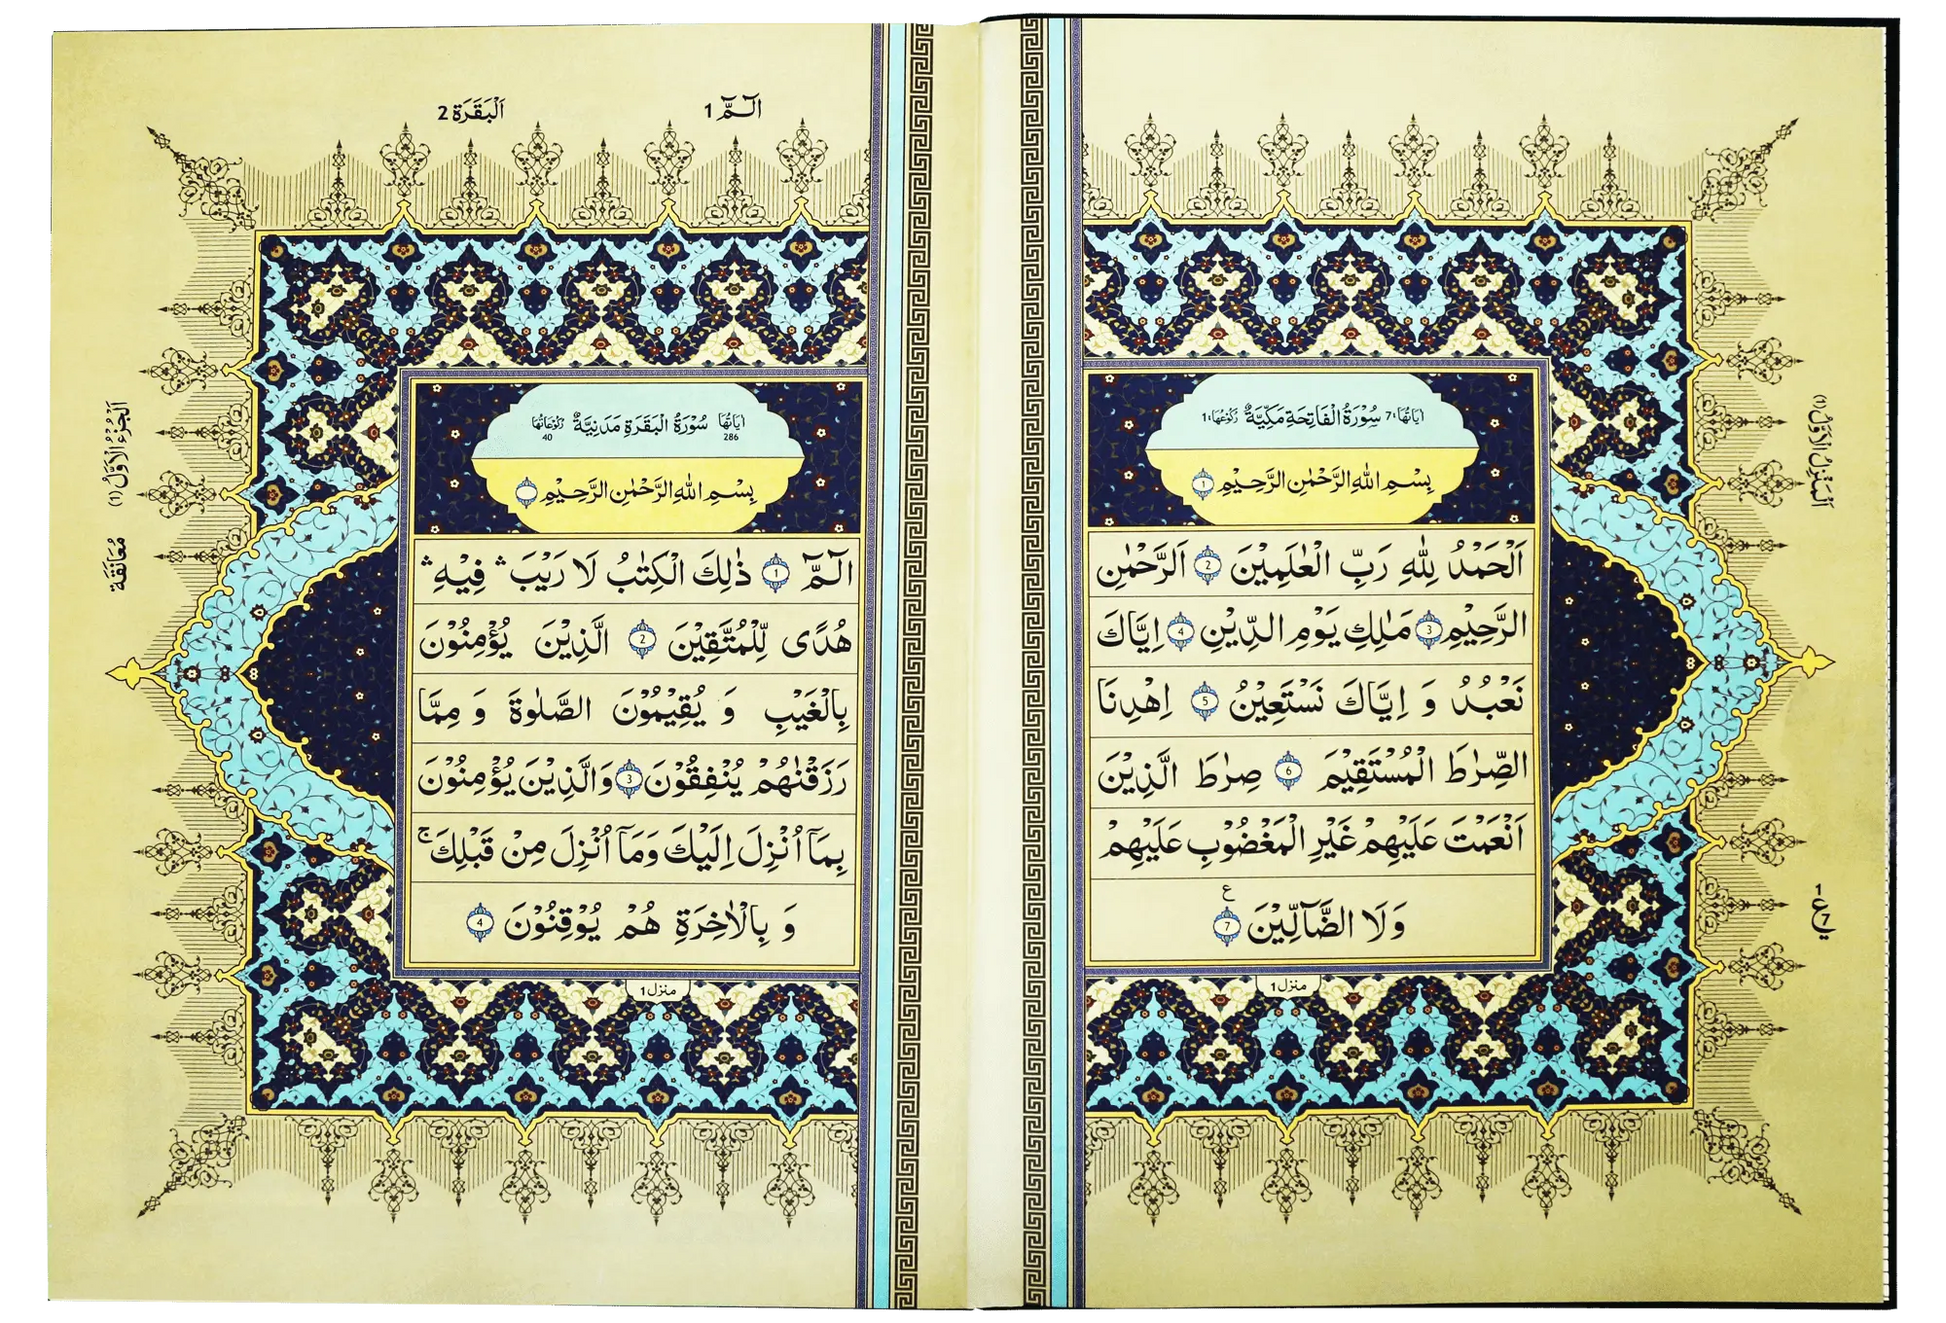 اٰيَاتُهَا:7 سُوْرَةُ الْفَاتِحَةِ مَكِّيَّةٌ رُكُوْعُهَا:1
بِسْمِ اللهِ الرَّحْمٰنِ الرَّحِيْمِ 1
اَلْحَمْدُ لِلّٰهِ رَبِّ الْعٰلَمِيْنَ 2 الرَّحْمٰنِ
الرَّحِيْمِ 3 مٰلِكِ يَوْمِ الدِّيْنِ 4 اِيَّاكَ
نَعْبُدُ وَ اِيَّاكَ نَسْتَعِيْنُ 5 اِهْدِنَا
الصِّرٰطَ الْمُسْتَقِيْمَ 6 صِرٰطَ الَّذِيْنَ
اَنْعَمْتَ عَلَيْهِمْ غَيْرِ الْمَغْضُوْبِ عَلَيْهِمْ
وَلَا الضَّآلِّيْنَ 7 ع
منزل 1
اَلْمَنْزِلُ الْاَوَّلُ (1)
الٓمّٓ 1
اَلْبَقَرَة 2
اٰيَاتُهَا 286 سُوْرَةُ الْبَقَرَةِ مَدَنِيَّةٌ رُكُوْعَاتُهَا 40
بِسْمِ اللهِ الرَّحْمٰنِ الرَّحِيْمِ
الٓمّٓ 1 ذٰلِكَ الْكِتٰبُ لَا رَيْبَ ۛ فِيْهِ ۛ
هُدًى لِّلْمُتَّقِيْنَ 2 الَّذِيْنَ يُؤْمِنُوْنَ
بِالْغَيْبِ وَ يُقِيْمُوْنَ الصَّلٰوةَ وَ مِمَّا
رَزَقْنٰهُمْ يُنْفِقُوْنَ 3 وَالَّذِيْنَ يُؤْمِنُوْنَ
بِمَآ اُنْزِلَ اِلَيْكَ وَمَآ اُنْزِلَ مِنْ قَبْلِكَ ۚ
وَ بِالْاٰخِرَةِ هُمْ يُوْقِنُوْنَ 4
منزل 1
اَلْجُزْءُ الْاَوَّلُ (1)
مُعَانَقَة